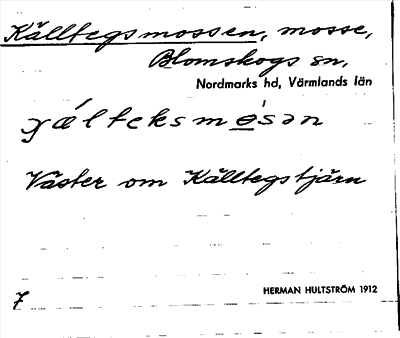 Källtegsmossen, mosse,
Blomskogs sn,
Nordmarks hd, Värmlands län
Väster om Källtegstjärn
7
HERMAN HULTSTRÖM 1912